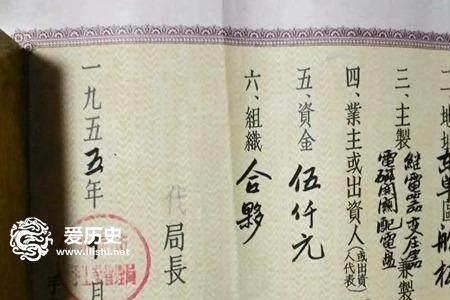 二、地址
東單區船板
三、主製
继電器变压器
電磁開關配電盘
兼製
四、業主或出資人
(或出資人代表)
五、資金
伍仟元
六、組織
合夥
代
局長
一九五五年
月
爱历史
www.ilishi.net